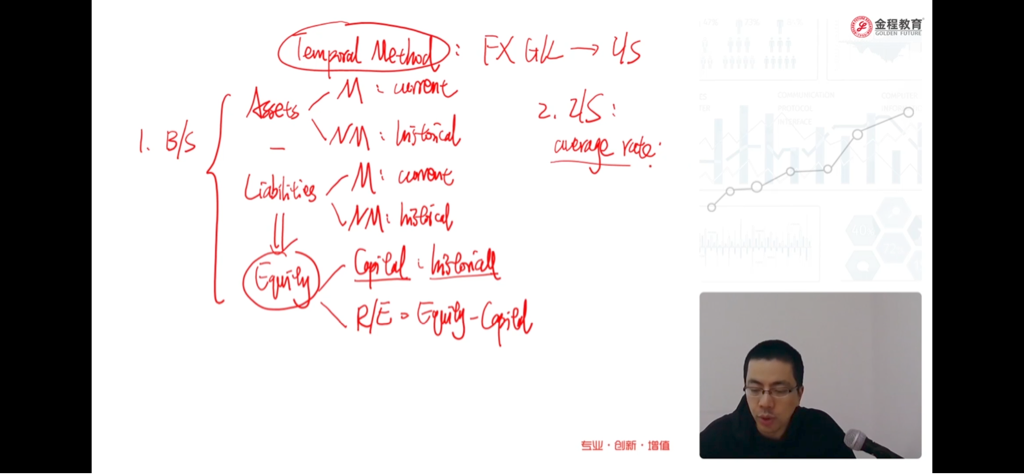 金程教育
GOLDEN FUTURE
Temporal Method : FX G/L → I/S
1. B/S
Assets
M : current
NM : historical
—
Liabilities
M : current
NM : historical
Equity
Capital : historical
R/E = Equity - Capital
2. I/S :
average rate.
专业·创新·增值